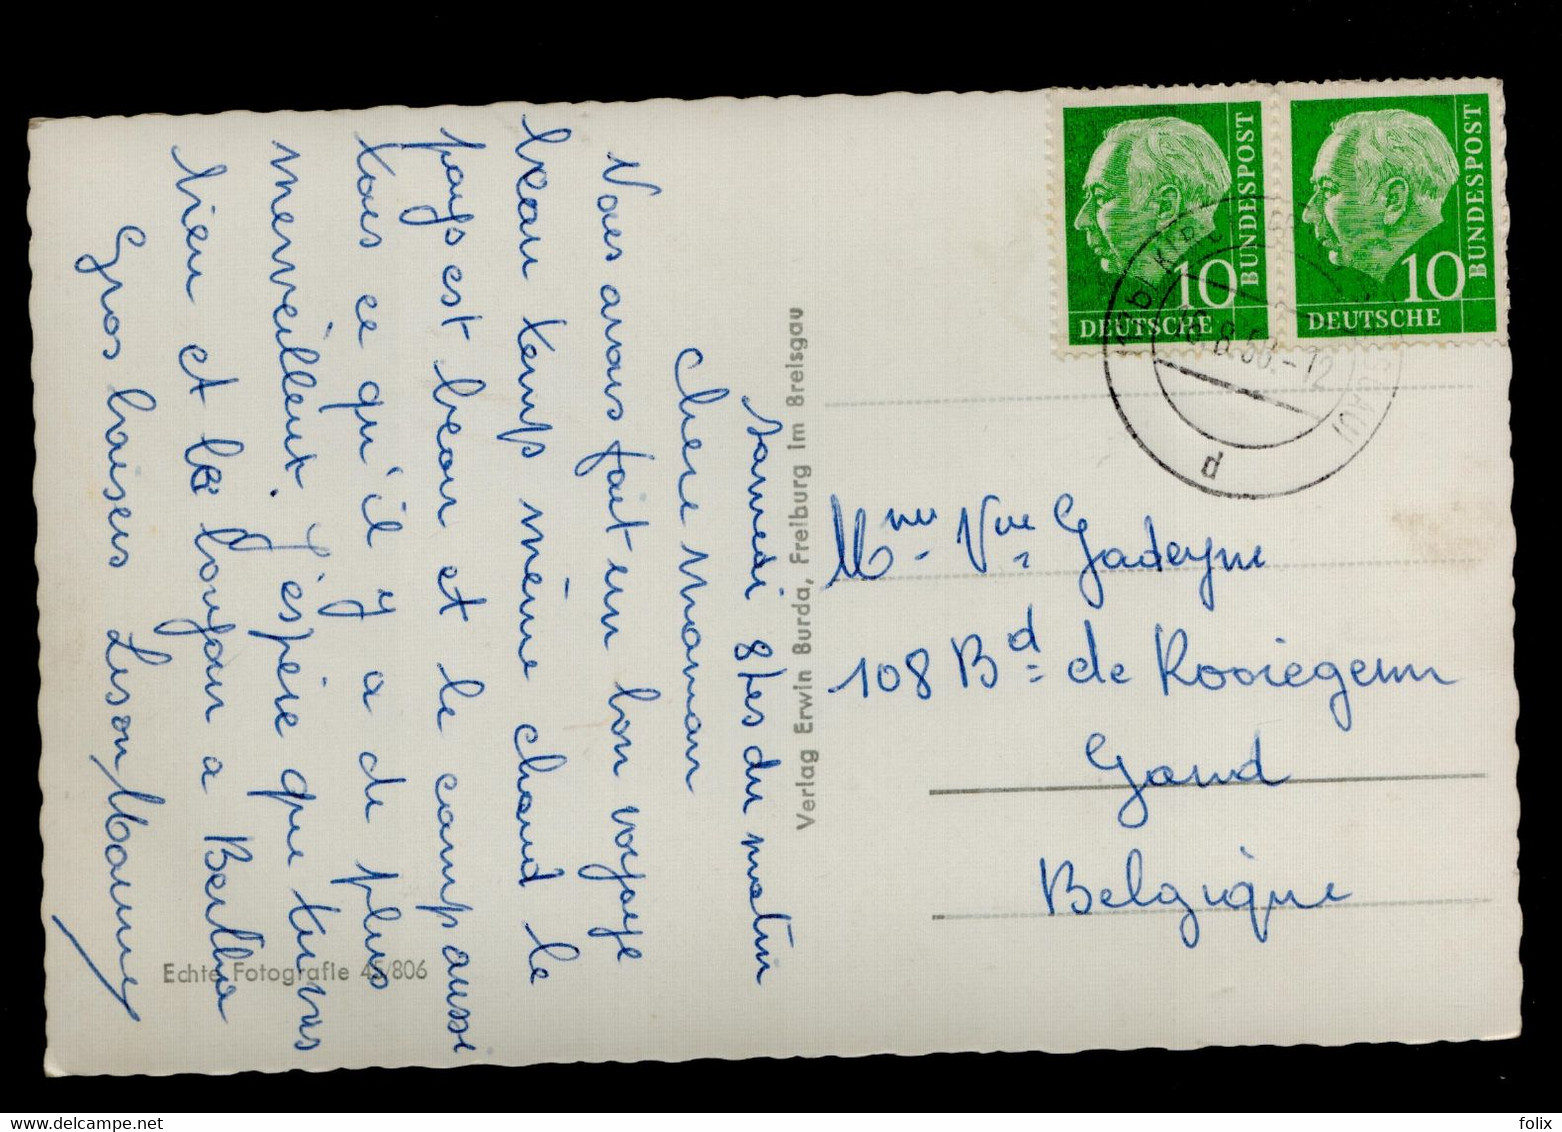 Samedi 8 tes du matin
chere maman
Nous avons fait un bon voyage
beau temps même chaud le
pays est beau et le camp aussi
tous ce qu'il y a de plus
merveilleux. J'espère que tu vas
bien et le bonjour a Bertha
Gros baisers
Verlag Erwin Burda, Freiburg im Breisgau
Echte Fotografie 45/806
DEUTSCHE
BUNDESPOST
10
DEUTSCHE
BUNDESPOST
10
d
Mme Vve Gadeyne
108 Bd de Rooiegem
Gand
Belgique
folix